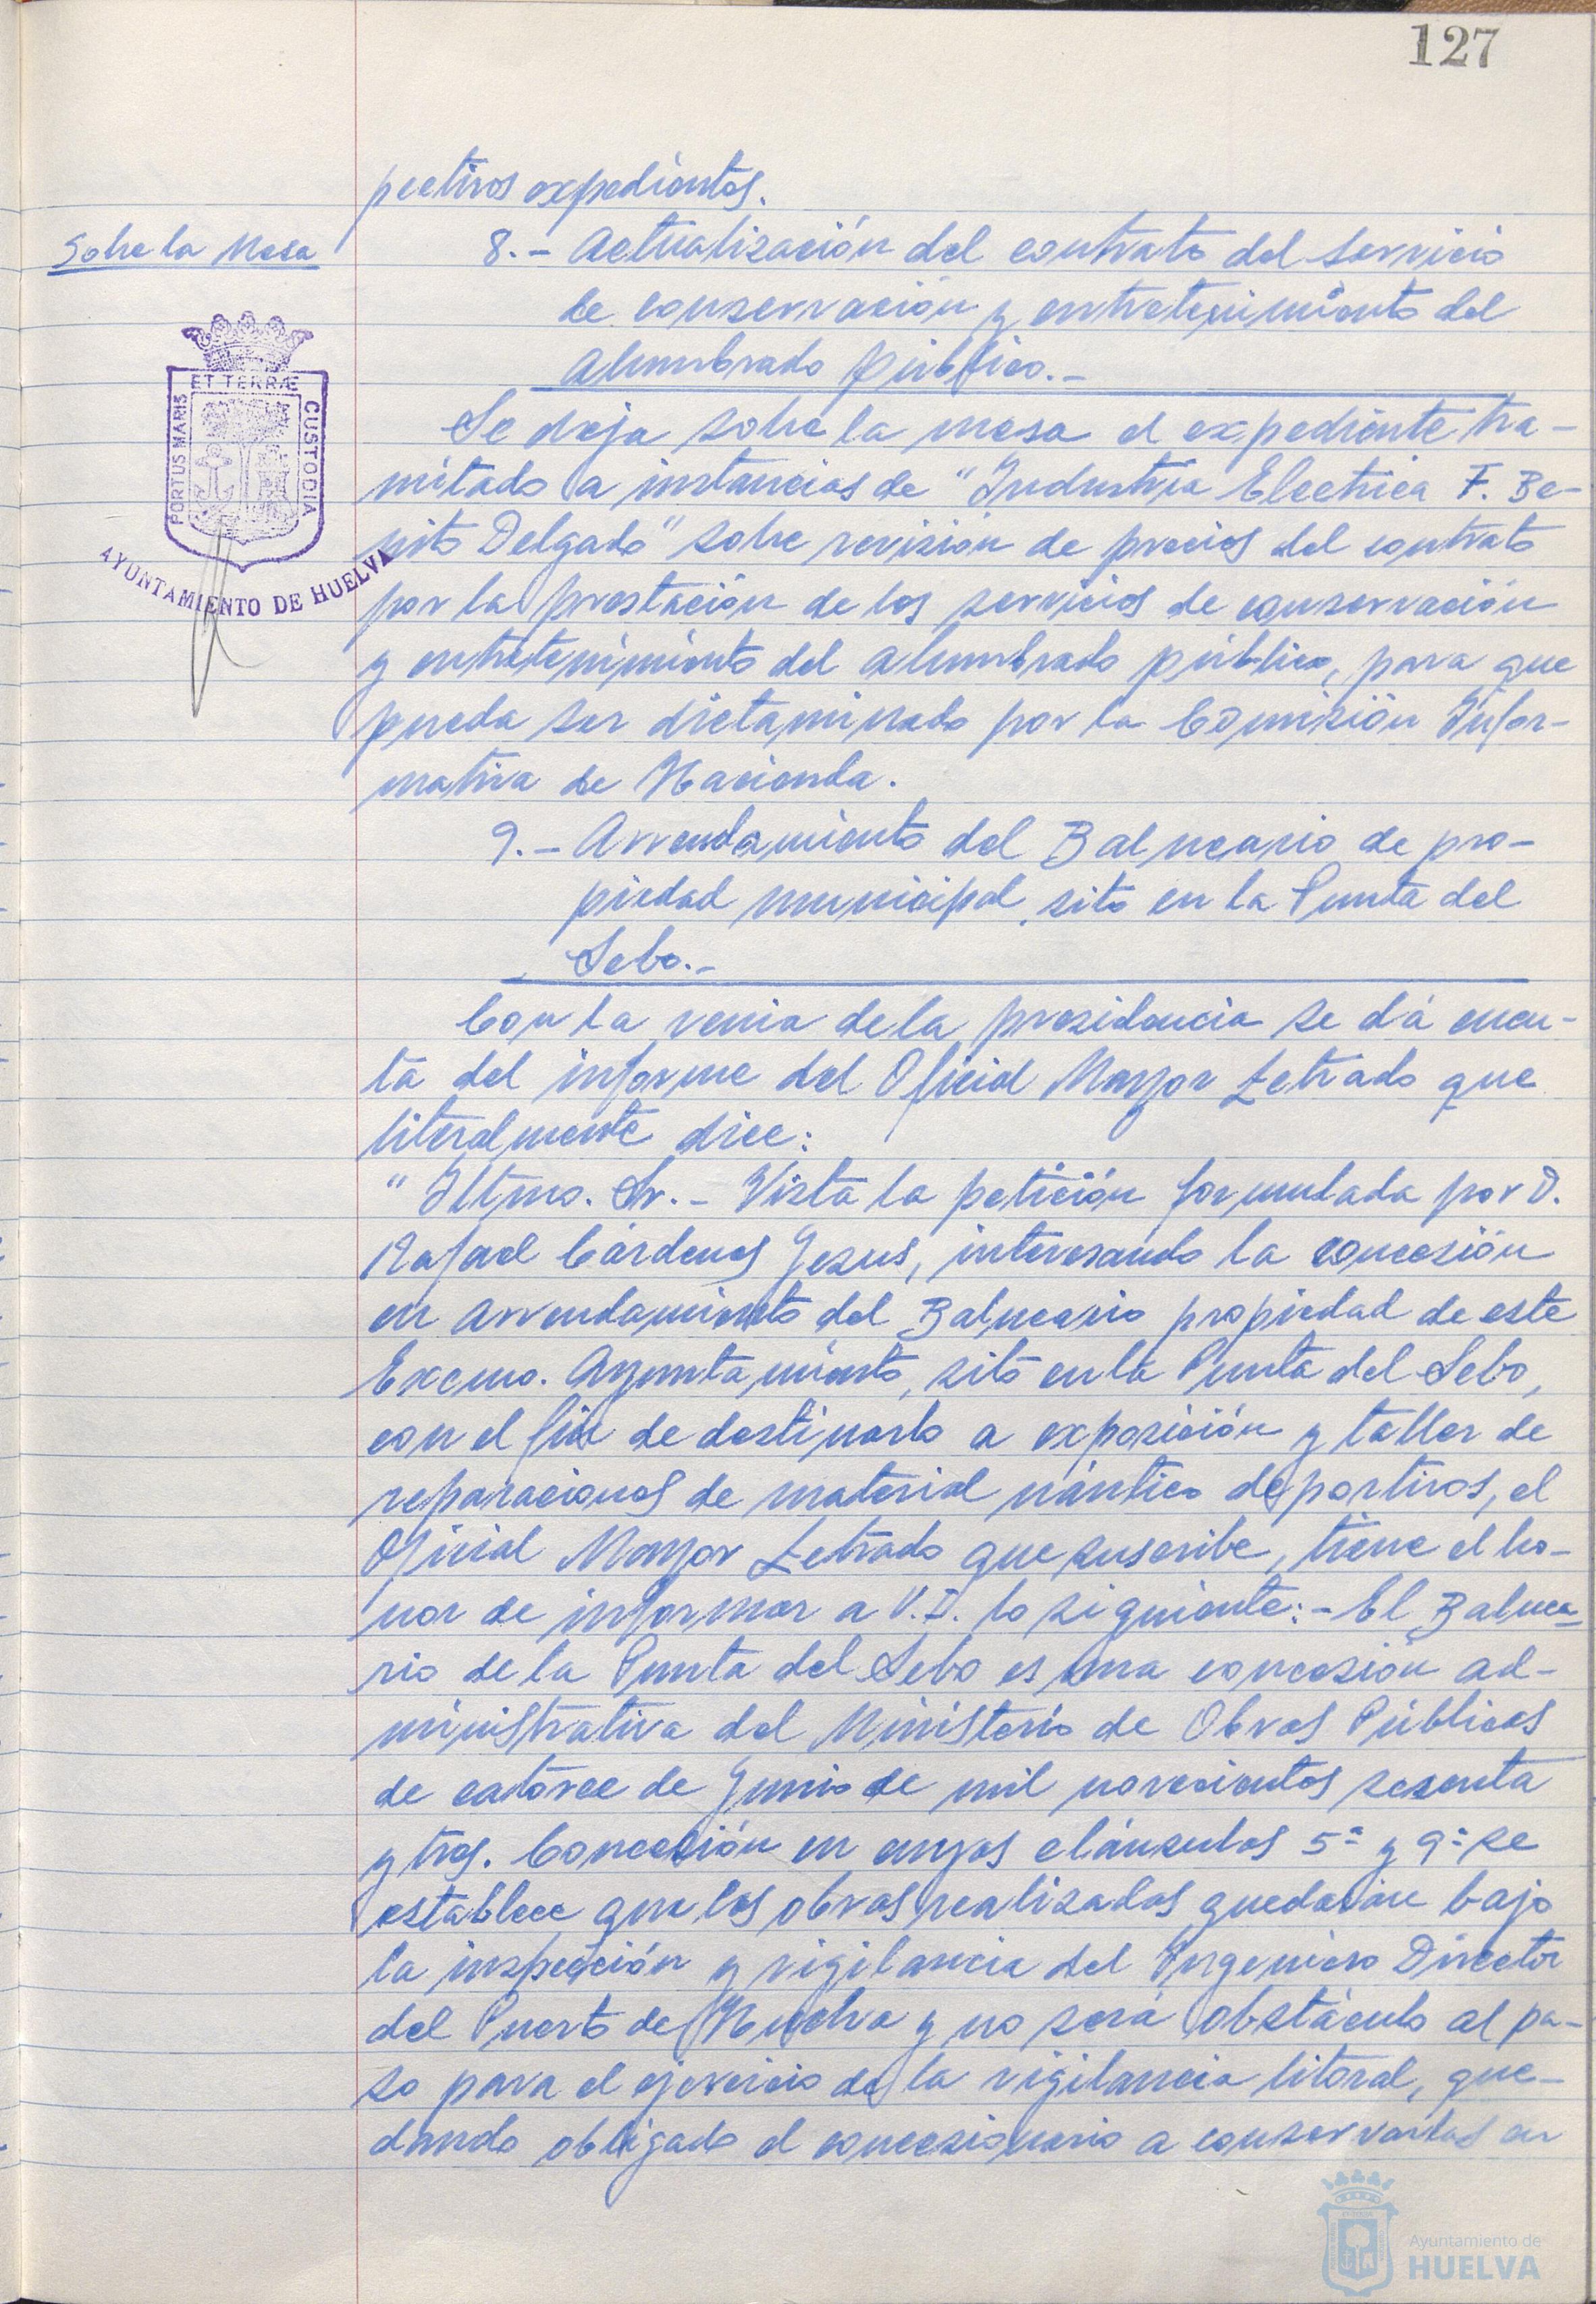 127
pectivos expedientes.
Sobre la Mesa
8.- Actualización del contrato del servicio
de conservación y entretenimiento del
alumbrado público.-
ET TERRÆ
PORTUS MARIS
CUSTODIA
AYUNTAMIENTO DE HUELVA
Se deja sobre la mesa el expediente tra-
mitado a instancias de "Industria Electrica F. Be-
nito Delgado" sobre revisión de precios del contrato
por la prestación de los servicios de conservación
y entretenimiento del alumbrado público, para que
pueda ser dictaminado por la Comisión Infor-
mativa de Hacienda.
9.- Arrendamiento del Balneario de pro-
piedad municipal, sito en la Punta del
Sebo.-
Con la venia de la presidencia se dá cuen-
ta del informe del Oficial Mayor Letrado que
literalmente dice:
"Iltmo. Sr.- Vista la petición formulada por D.
Rafael Cárdenas Jesus, interesando la concesión
en arrendamiento del Balneario propiedad de este
Excmo. Ayuntamiento, sito en la Punta del Sebo,
con el fin de destinarlo a exposición y taller de
reparaciones de material náutico deportivos, el
Oficial Mayor Letrado que suscribe, tiene el ho-
nor de informar a V.I. lo siguiente:- El Balnea-
rio de la Punta del Sebo es una concesión ad-
ministrativa del Ministerio de Obras Públicas
de catorce de Junio de mil novecientos sesenta
y tres. Concesión en cuyas cláusulas 5ª y 9ª se
establece que las obras realizadas quedarán bajo
la inspección y vigilancia del Ingeniero Director
del Puerto de Huelva y no será obstáculo al pa-
so para el ejercicio de la vigilancia litoral, que-
dando obligado el concesionario a conservarlas en
Ayuntamiento de
HUELVA